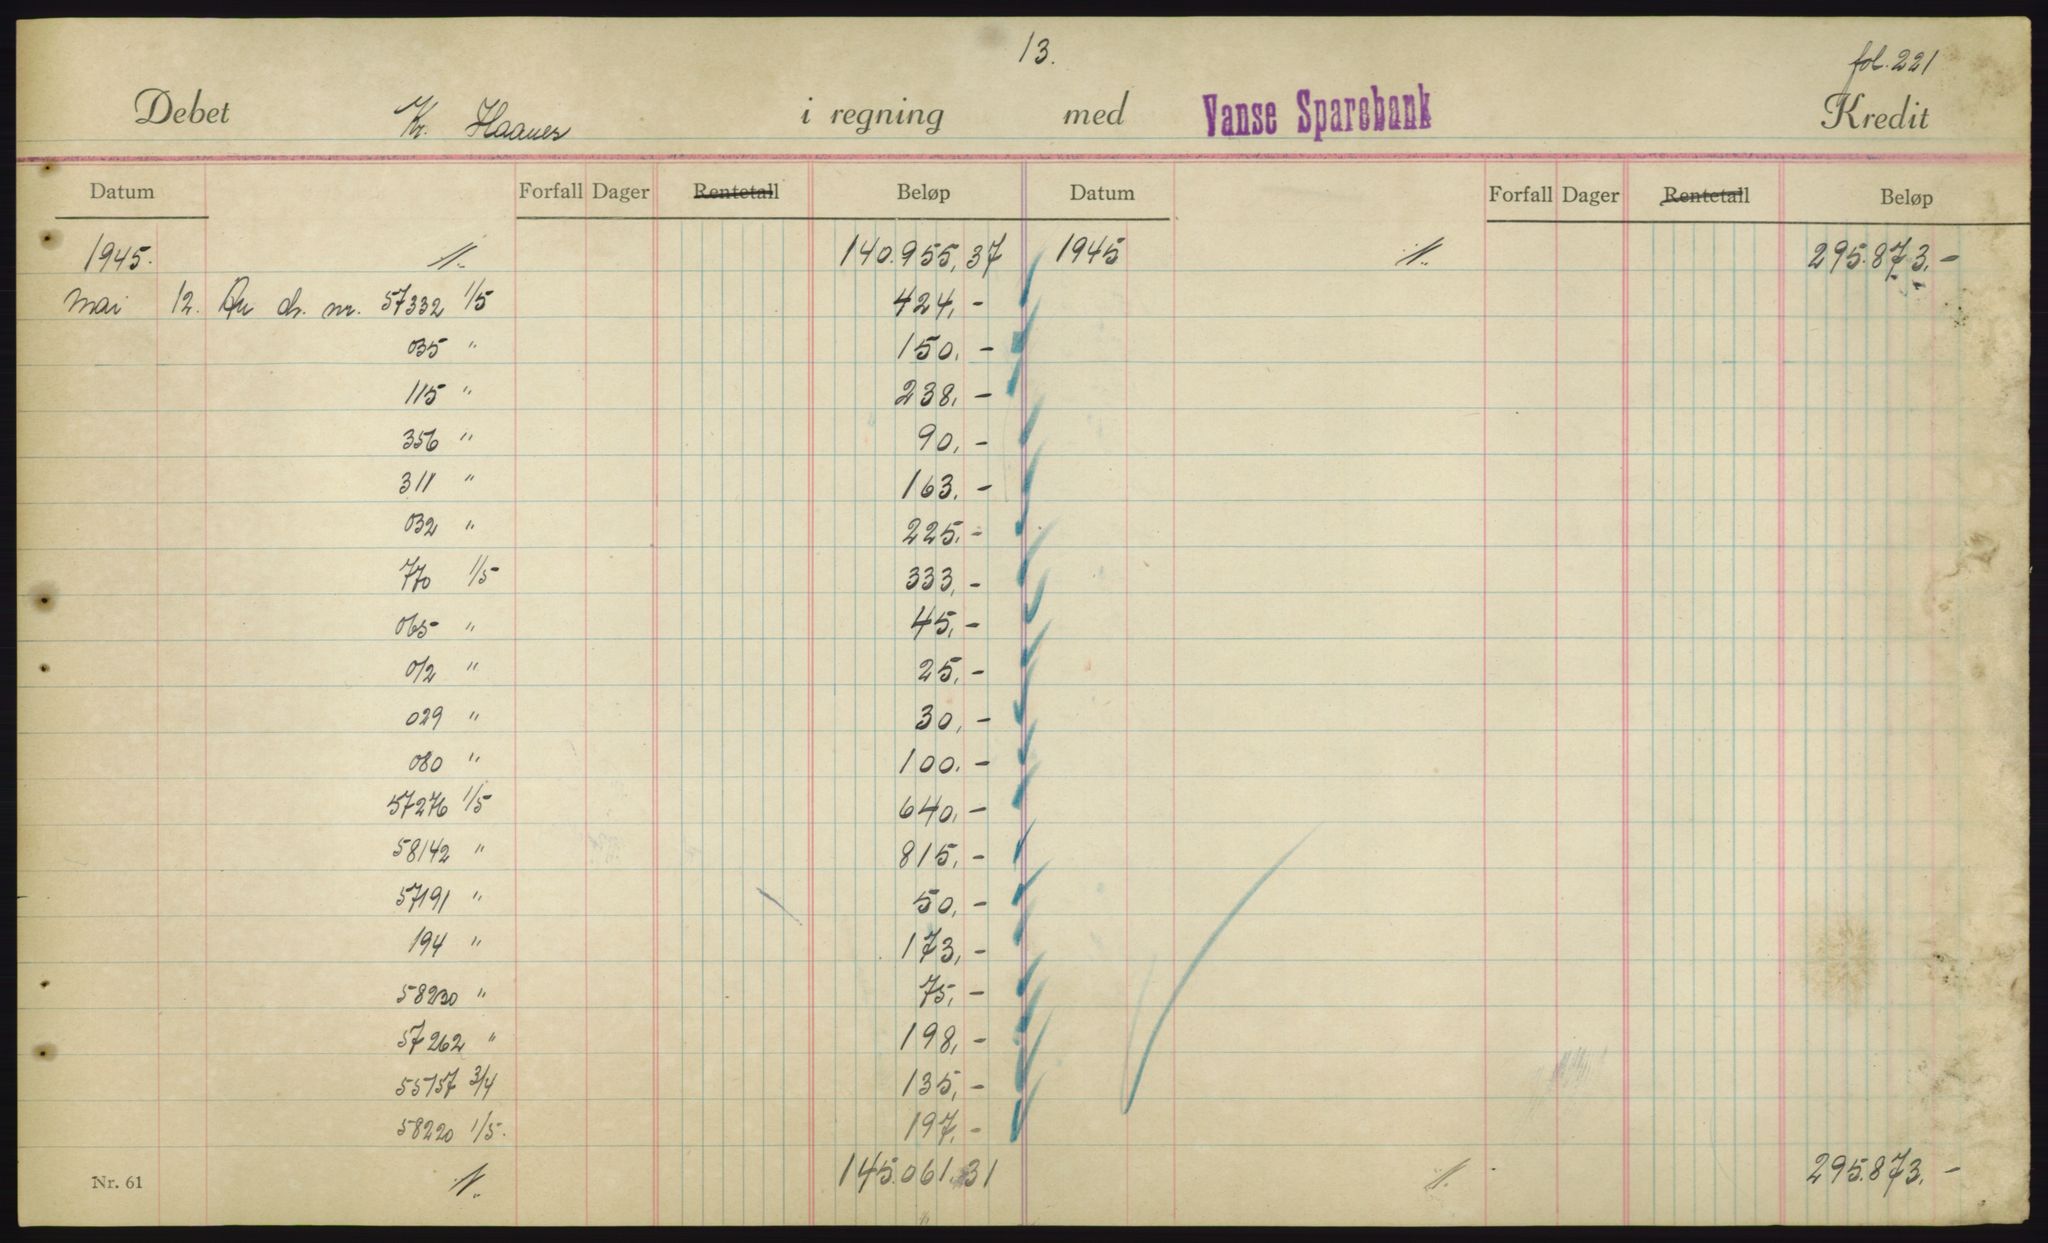 13.
fol. 221
Debet Kr. Haanes i regning med Vanse Sparebank Kredit
Datum Forfall Dager Rentetall Beløp Datum Forfall Dager Rentetall Beløp
1945. 140.955,37 1945 295.873,-
Mai 12. nr. 57332 1/5 424,-
035 " 150,-
115 " 238,-
356 " 90,-
311 " 163,-
032 " 225,-
770 1/5 333,-
065 " 45,-
012 " 25,-
029 " 30,-
080 " 100,-
57276 1/5 640,-
58142 " 815,-
57191 " 50,-
194 " 173,-
58230 " 75,-
57262 " 198,-
55757 3/4 135,-
58220 1/5. 197,-
Nr. 61 145.061,31 295.873,-